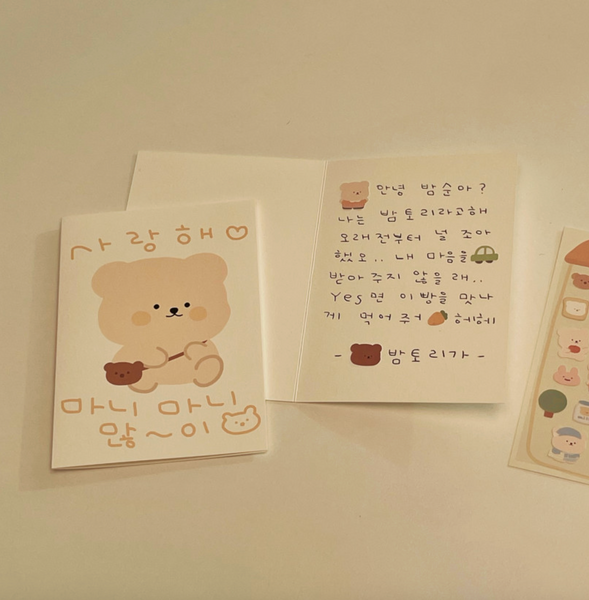 사랑해
마니 마니
많~이
안녕 밤순아?
나는 밤토리라고해
오래전부터 널 조아
했오.. 내 마음을
받아주지 않을래..
Yes면 이빵을 맛나
게 먹어주어 헤헤
- 밤토리가 -